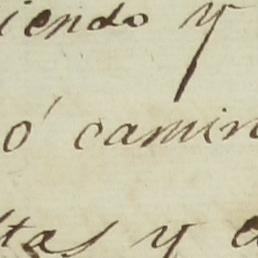 iendo y
ó camin
ltas y